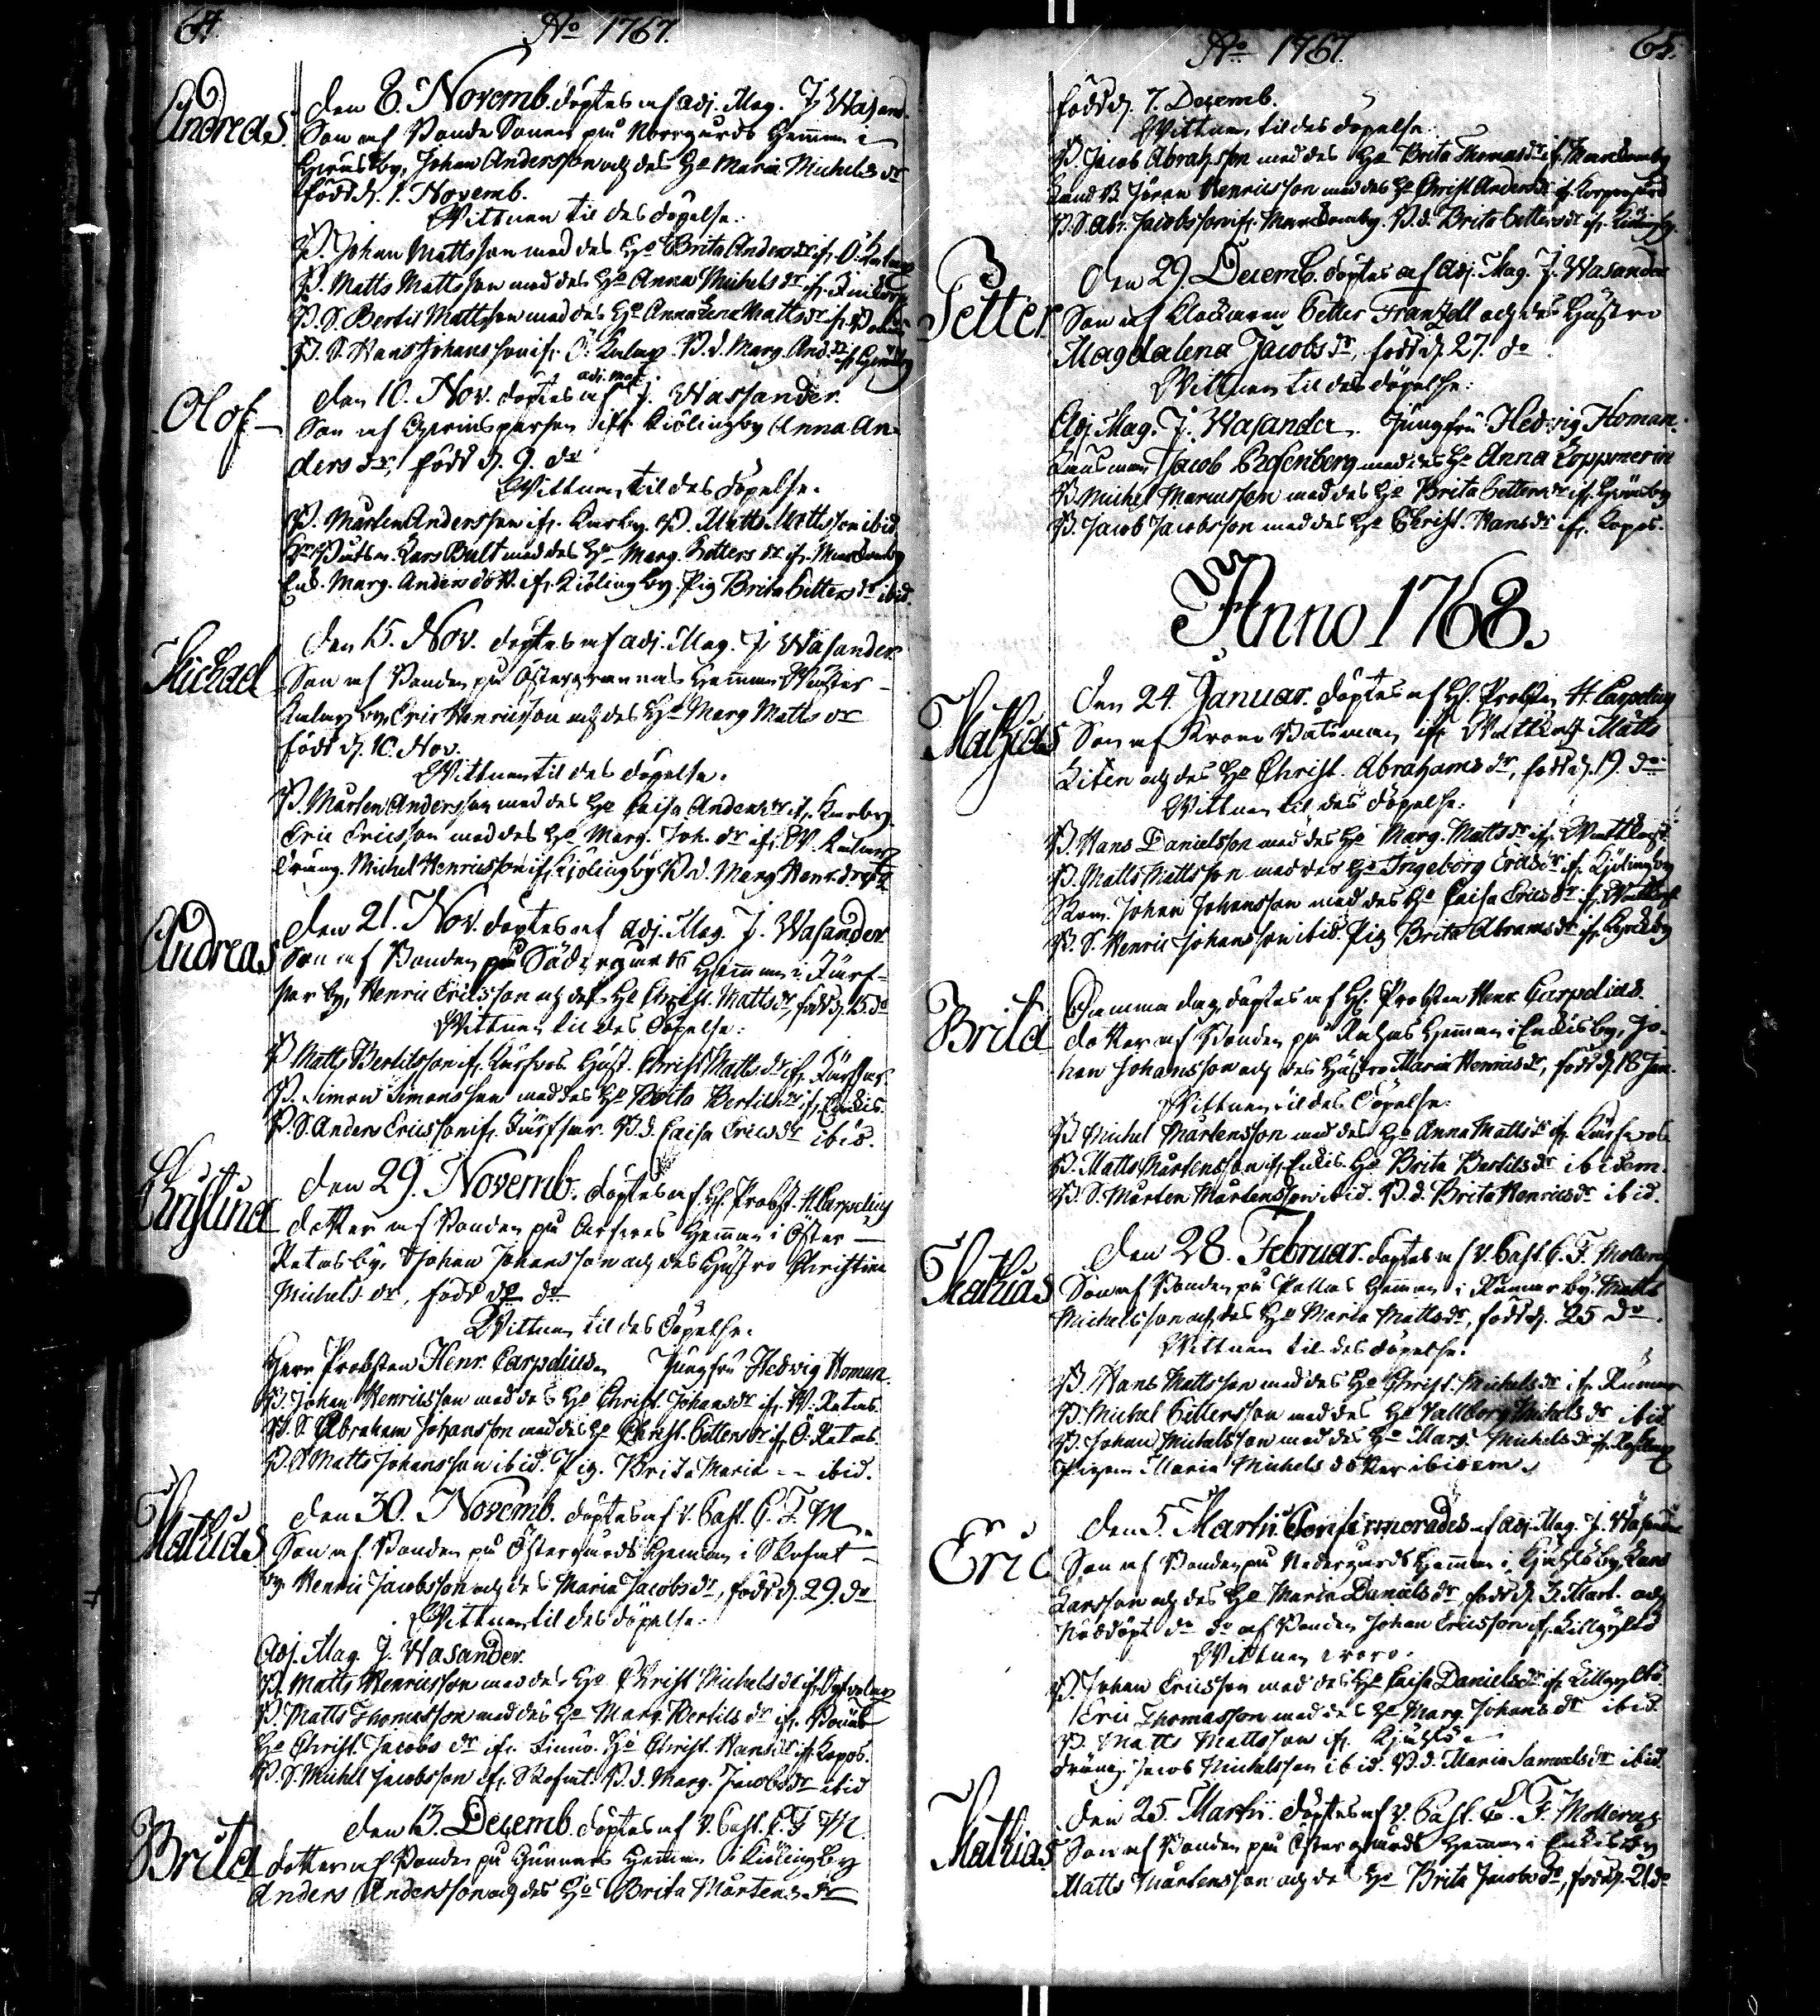 64.
No 1767.
Andreas
den 8. Novemb. döptes af adj. Mag. J. Wasand.
Son af Bonde Sonen på Norrgårds Hemman i
by, Johan Andersson och des Ho Maria Michels dr
född d. 1. Novemb.
Wittnen til des döpelse.
B. Johan Mattsson med des Ho Brita Anders dr ifr. Ö.
B. Matts Mattsson med des Ho Anna Michels dr ifr.
B. S. Bertil Mattsson med des Ho Anna Lena Matts dr ifr.
B. S. Hans Johansson ifr. Ö. B. d. Marg. And. dr ifr.
Olof
den 10. Nov. döptes af adj. Mag. J. Wassander.
Son af ifr. Kiölingby Anna An-
ders dr, född d. 9. do
Wittnen til des döpelse.
B. Mårten Andersson ifr. Karby. B. Matts Mattsson ibid.
Båtsm. Lars Bult med des Ho Marg. Petters dr ifr.
Enk. Marg. Anders dott. ifr. Kiölingby. Pig. Brita Petters dr ibid.
Michael
den 15. Nov. döptes af adj. Mag. J. Wasander.
Son af Bonden på Östergrannas Hemman Wäster-
by, Eric Henricsson och des Ho Marg Matts dr
född d. 10. Nov.
Wittnen til des döpelse.
B. Mårten Andersson med des Ho Caisa Anders dr ifr. Karby.
Eric Ericsson med des Ho Marg. Joh. dr ifr. W.
Dräng. Michel Henricsson ifr. Kjölingby B. d. Marg Henr. dr
Andreas
den 21. Nov. döptes af adj. Mag. J. Wasander.
Son af Bonden på Södergårds Hemman i
by, Henric Ericsson och des Ho Christ. Matts dr, född d. 15. do
Wittnen til des döpelse:
B Matts Bertilsson ifr. Hust. Christ Matts dr ifr.
B. Simon Simonsson med des Ho Brita Bertils dr ifr. Enkis.
B. S. Anders Ericsson ifr. B. d. Caisa Erics dr ibid.
Christina
den 29. Novemb. döptes af H. Probst. H. Carpelius
dotter af Bonden på Hemman i Öster-
Retas by, Johan Johansson och des Hustro Christina
Michels dr, född do do
Wittnen til des döpelse.
Herr Probsten Henr. Carpelius. Jungfru Hedvig Homan.
B. Johan Henricsson med des Ho Christ. Johans dr ifr. W. Retas
B. S. Abraham Johansson med des Ho Christ. Petters dr ifr. Ö. Retas
B. S Matts Johansson ibid. Pig. Brita Maria -- ibid.
Mathias
den 30. Novemb. döptes af V. Past. C. F. M.
Son af Bonden på Östergårds Hemman i
by Henric Jacobsson och des Maria Jacobs dr, född d. 29. do
Wittnen til des döpelse.
Adj. Mag. J. Wasander.
B. Matts Henricsson med des Ho Christ Michels dr ifr.
B. Matts Thomasson med des Ho Marg. Bertils dr ifr.
Ho Christ. Jacobs dr ifr. Ho Christ. Hans dr ifr. Kopos.
B. S. Michel Jacobsson ifr. B. d. Marg. Jacobs dr ibid
Brita
den 13. Decemb. döptes af V. Past. C. F M.
dotter af Bonden på Gunnars Hemman i Kiölingby
Anders Andersson och des Ho Brita Mårtens dr
No 1767.
65.
född d. 7. Decemb.
Wittnen til des döpelse.
B. Jacob Abrahsson med des Ho Brita Thomas dr ifr.
B Jöran Henricsson med des Ho Christ Anders dr ifr.
B. S. Abr. Jacobsson ifr. B. d. Brita Petters dr ifr.
Petter
den 29. Decemb. döptes af Adj. Mag. J. Wasander
Son af Klockaren Petter Frantzell och des Hustro
Magdalena Jacobs dr, född d. 27. do
Wittnen til des döpelse:
Adj. Mag. J. Wasander. Jungfru Hedvig Homan.
Jacob Rosenberg med des Ho Anna
B. Michel med des Ho Brita Petters dr ifr.
B. Jacob Jacobsson med des Ho Christ. Hans dr ifr. Kopos.
Anno 1768.
Mathias
den 24. Januar. döptes af H. Probsten H. Carpelius
Son af Krono Båtsman ifr. Wattkast Matts
Liten och des Ho Christ. Abrahams dr, född d. 19. do
Wittnen til des döpelse:
B. Hans Danielsson med des Ho Marg. Matts dr ifr. Wattkast
B. Matts Mattsson med des Ho Ingeborg Erics dr ifr. Kjölingby
Skom. Johan Johansson med des Ho Caisa Erics dr ifr. Wattkast
B. S. Henric Johansson ibid. Pig Brita Abrams dr ifr.
Brita
Samma dag döptes af H. Probsten Henr. Carpelius.
dotter af Bonden på Hemman i Enkis by, Jo-
han Johansson och des Hustro Maria Henrics dr, född d. 18 Jan.
Wittnen til des döpelse.
B. Michel Mårtensson med des Ho Anna Matts dr ifr.
B. Matts Mårtensson ifr. Enkis. Ho Brita Bertils dr ibidem.
B. S. Mårten Mårtensson ibid. B. d. Brita Henrics dr ibid.
Mathias
den 28. Februar. döptes af V. Past. C. F. Mollerus
Son af Bonden på Pellas Hemman i Rumar by. Matts
Michelsson och des Ho Maria Matts dr, född d. 25 do.
Wittnen til des döpelse.
B. Hans Mattsson med des Ho Christ. Michels dr ifr. Rumar
B. Michel Pettersson med des Ho Wallborg Michels dr ibid
B. Johan Michelsson med des Ho Marg. Michels dr ifr.
Pigan Maria Michels dotter ibidem.
Eric
den 5. Martii. Confirmerades af Adj. Mag. J. Wasander
Son af Bonden på Nedergårds Hemman i by, Lars
Larsson och des Ho Maria Daniels dr född d. 3. Mart. och
Nöddöpt do do af Bonden Johan Ericsson ifr.
Wittnen woro.
B. Johan Ericsson med des Ho Caisa Daniels dr ifr.
Eric Thomasson med des Ho Marg. Johans dr ibid.
B. Matts Mattsson ifr.
Dräng. Jacob Michelsson ibid. B. d. Maria Samuels dr ibid.
Mathias
den 25. Martii. döptes af V. Past. C. F. Mollerus
Son af Bonden på Östergårds Hemman i Enkis by
Matts Mårtensson och des Ho Brita Jacobs dr, född d. 21 do